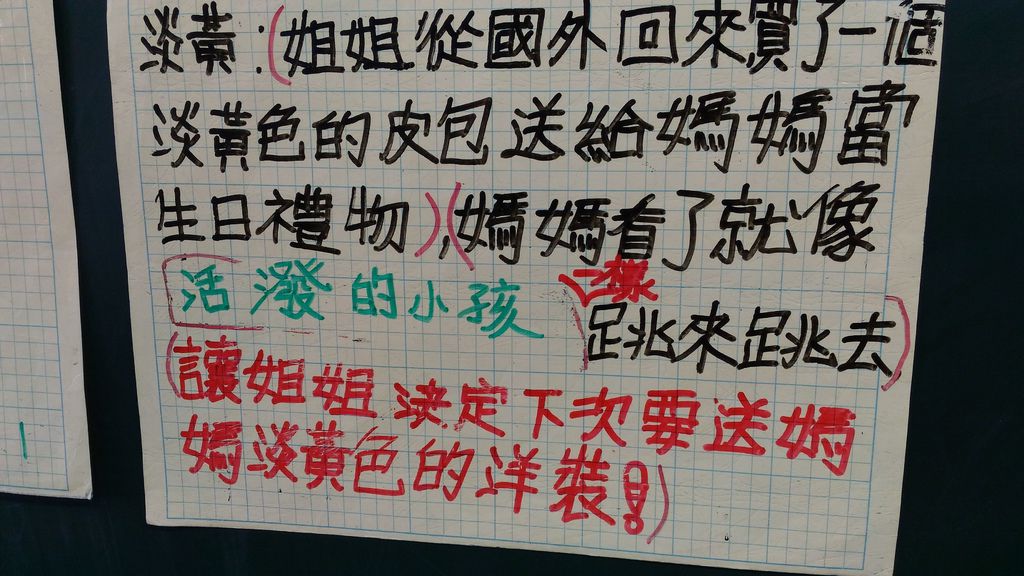 淡黃:(姐姐從國外回來買了一個
淡黃色的皮包送給媽媽當
生日禮物),(媽媽看了就像
活潑的小孩一樣
跳來跳去)
(讓姐姐決定下次要送媽
媽淡黃色的洋裝!)